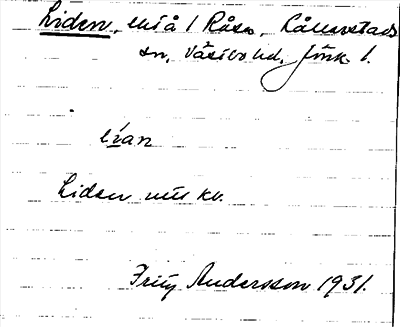 Liden, litå / Råsa, Kållerstads
sn, Västbo hd. Jönk. l.
lían
Liden vns kv.
Fritz Andersson 1931.